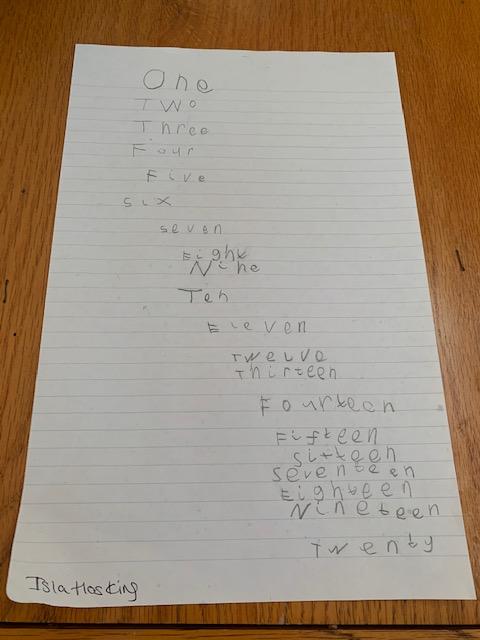 One
Two
Three
Four
Five
six
seven
Eight
Nine
Ten
Eleven
Twelve
Thirteen
Fourteen
Fifteen
sitteen
seventeen
Eighteen
Nineteen
Twenty
Isla Hosking